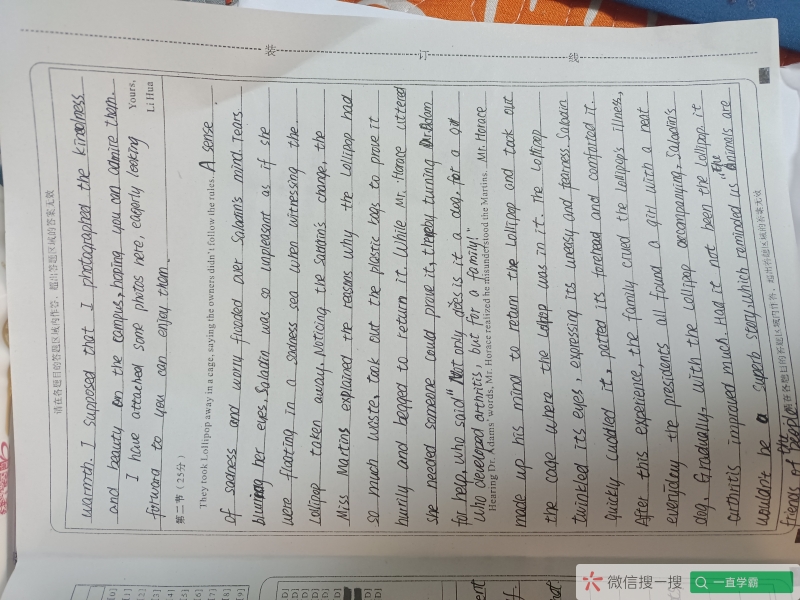 请在各题目的答题区域内作答，超出答题区域的答案无效
warmth. I supposed that I photographed the kindness
and beauty on the campus, hoping you can admire them.
I have attached some photos here, eagerly looking
forward to you can enjoy them.
Yours,
Li Hua
第二节（25分）
They took Lollipop away in a cage, saying the owners didn't follow the rules. A sense
of sadness and worry flooded over Saladin's mind. Tears
blurring her eyes, Saladin was so unpleasant as if she
were floating in a sadness sea when witnessing the
Lollipop taken away. Noticing the Saladin's change, the
Miss Martins explained the reasons why the Lollipop had
so much waste, took out the plastic bags to prove it
hurrily and begged to return it. While Mr. Horace uttered
she needed someone could prove it, thereby turning Dr. Adam
for help, who said "Not only does is it a dog for a girl
who developed arthritis, but for a family."
Hearing Dr. Adams' words, Mr. Horace realized he misunderstood the Martins. Mr. Horace
made up his mind to return the Lollipop and took out
the cage where the Lollipop was in it. The Lollipop
twinkled its eyes, expressing its uneasy and fearness. Saladin
quickly cuddled it, patted its forehead and comforted it.
After this experience, the family cured the Lollipop's illness,
everyday the presidents all found a girl with a neat
dog. Gradually, with the Lollipop accompanying, Saladin's
arthritis improved much. Had it not been the Lollipop, it
wouldn't be a superb story, which reminded us "The animals are
the friends of people
请在各题目的答题区域内作答，超出答题区域的答案无效
微信搜一搜
一直学霸